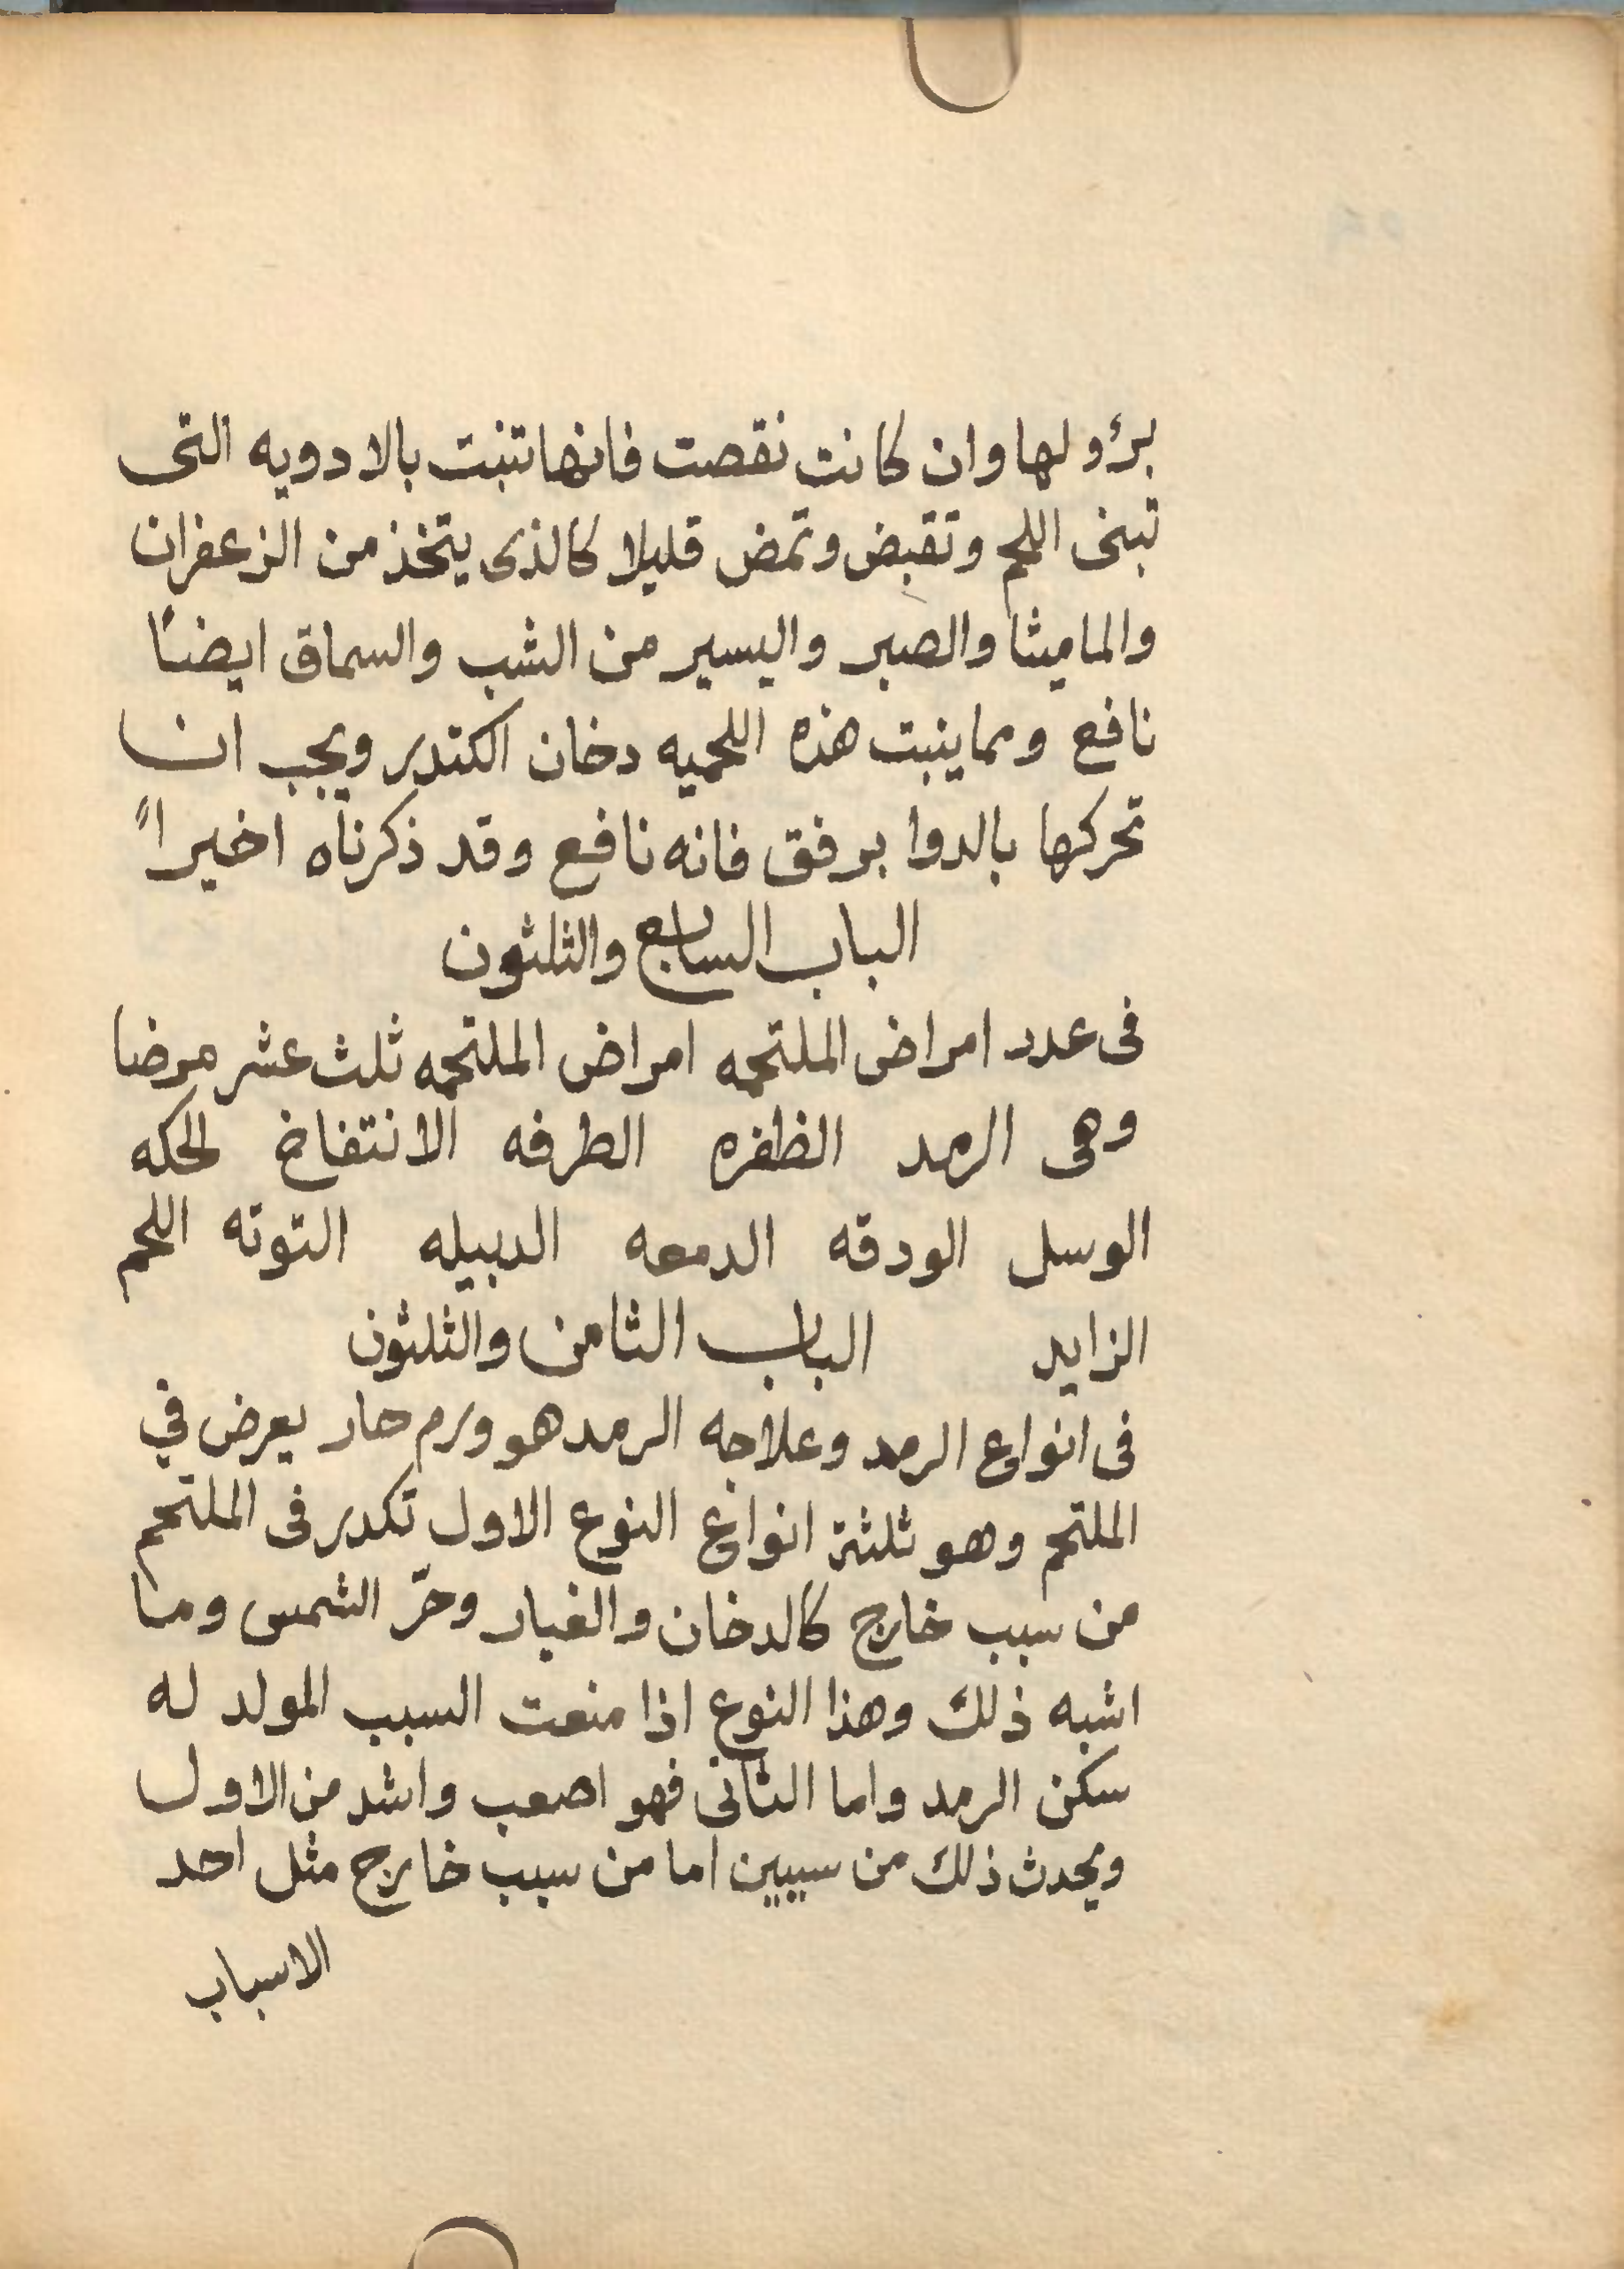 برؤ لها وان كانت نقصت فانها تنبت بالادويه التى
تبنى اللحم وتقبض وتمض قليلا كالذى يتخذ من الزعفران
والماميثا والصبر واليسير من الشب والسماق ايضاً
نافع ومما ينبت هذه اللحميه دخان الكندر ويجب ان
تحركها بالدوا برفق فانه نافع وقد ذكرناه اخيراً
الباب السابع والثلثون
فى عدد امراض الملتحمه امراض الملتحمه ثلث عشر مرضا
وهى الرمد الظفره الطرفه الانتفاخ الحكه
الوسل الودقه الدمعه الدبيله التوته اللحم
الزايد الباب الثامن والثلثون
فى انواع الرمد وعلاجه الرمد هو ورم حار يعرض في
الملتحم وهو ثلثة انواع النوع الاول تكدر فى الملتحم
من سبب خارج كالدخان والغبار وحرّ الشمس وما
اشبه ذلك وهذا النوع اذا منعت السبب المولد له
سكن الرمد واما الثانى فهو اصعب واشد من الاول
ويحدث ذلك من سببين اما من سبب خارج مثل احد
الاسباب